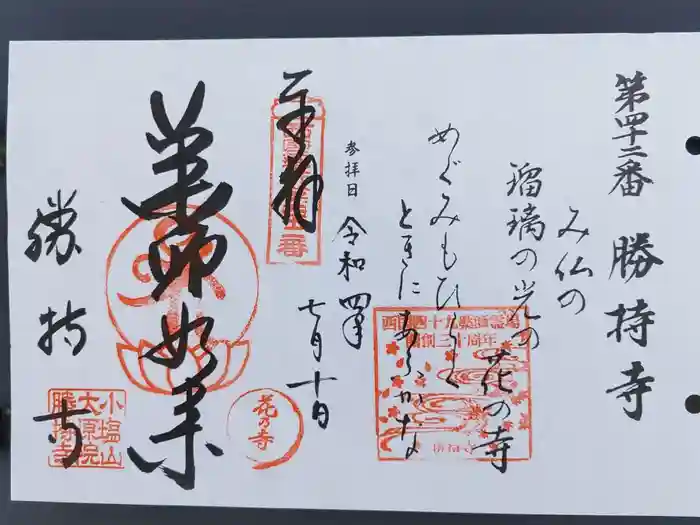 第四十二番 勝持寺
み仏の
瑠璃の光の
花の寺
めぐみもひらく
ときにあふかな
参拝日 令和四年
七月十日
奉拝
薬師如来
勝持寺
西国四十九薬師霊場
開創三十周年
勝持寺
花の寺
小塩山
大原院
勝持寺